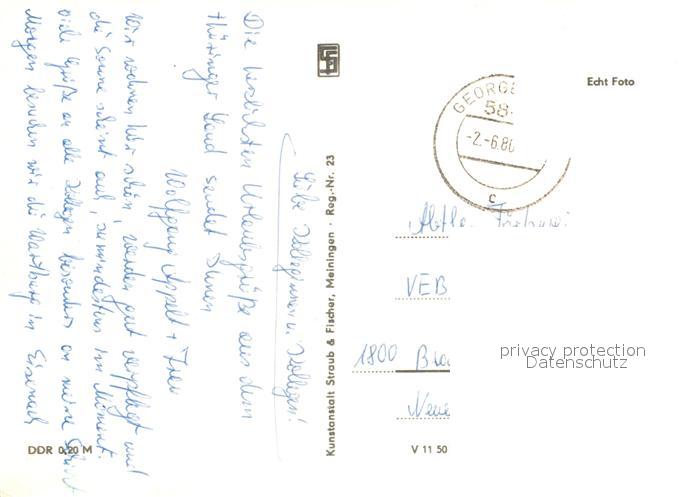 Liebe Kolleginnen u. Kollegen!
Die herzlichsten Urlaubsgrüße aus dem
Thüringer Land sendet Ihnen
Wolfgang Appelt + Frau
Wir wohnen hier schön, werden gut verpflegt und
die Sonne scheint auch, zumindestens im Moment.
Viele Grüße an alle Kollegen besonders an meine Schicht
Morgen besuchen wir die Wartburg in Eisenach
DDR 0,20 M
Kunstanstalt Straub & Fischer, Meiningen · Reg.-Nr. 23
Echt Foto
GEORGE
58
-2.-6.86
c
Abtlg.
VEB
1800 Bra
Neue
V 11 50
privacy protection
Datenschutz